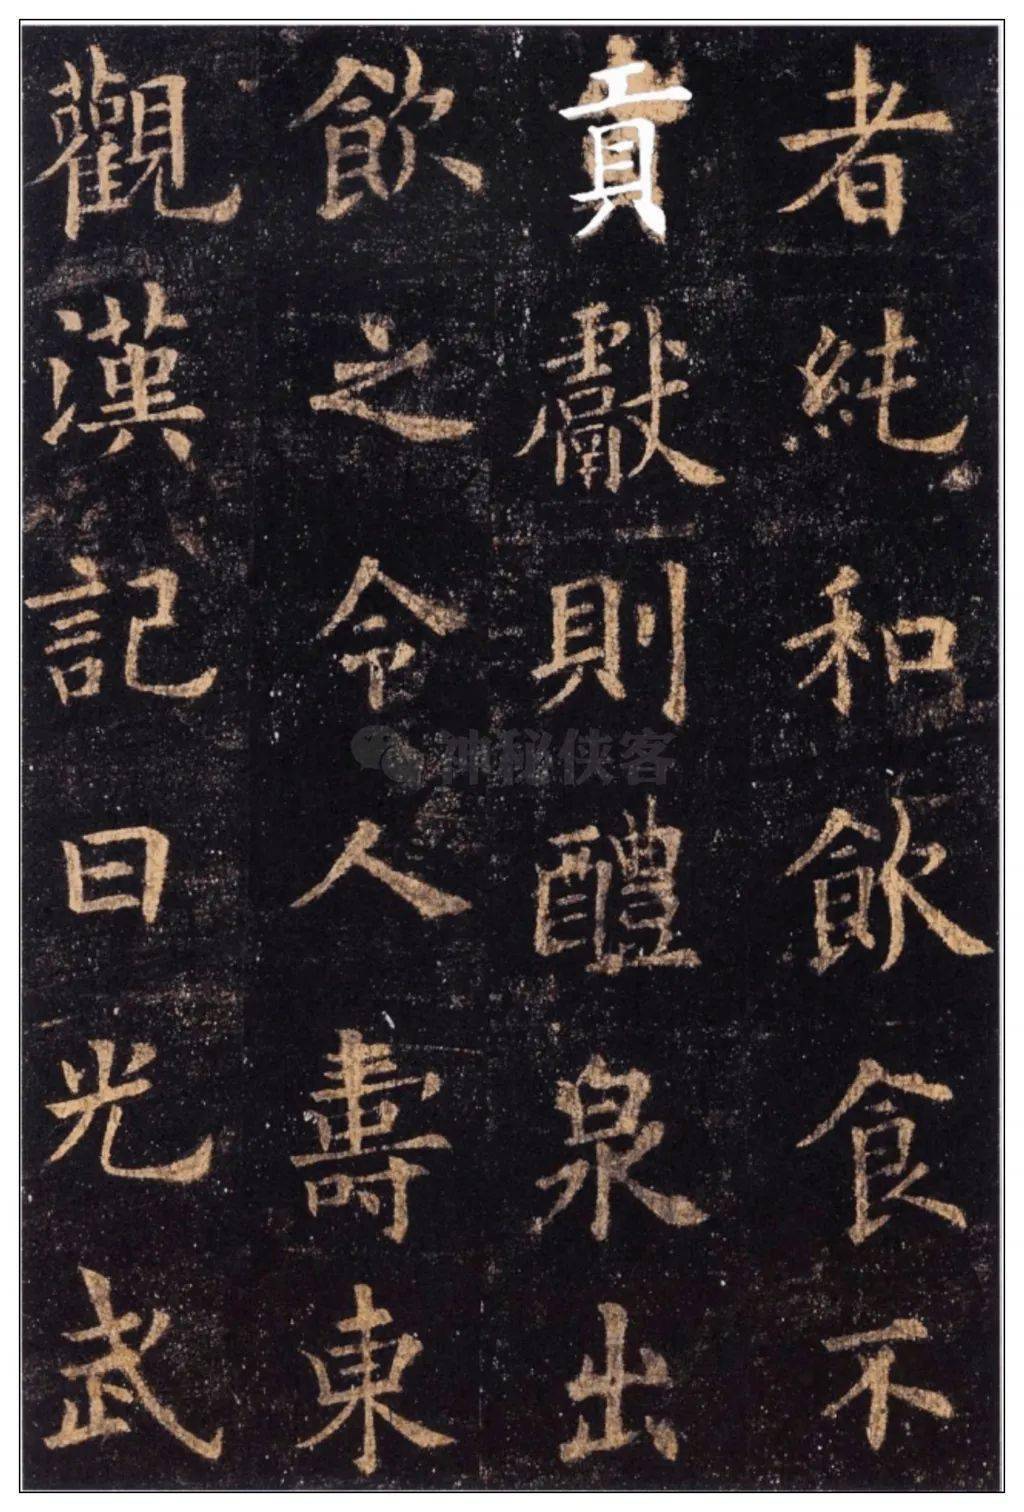 者純和飲食不
貢獻則醴泉出
飲之令人壽東
觀漢記曰光武
神秘侠客